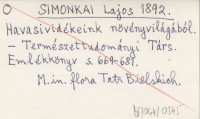 O SIMONKAI Lajos 1892.
Havasividékeink növényvilágából.
- Természettudományi Társ.
Emlékkönyv s. 669-687.
M.in. flora Tatr Bielskich.